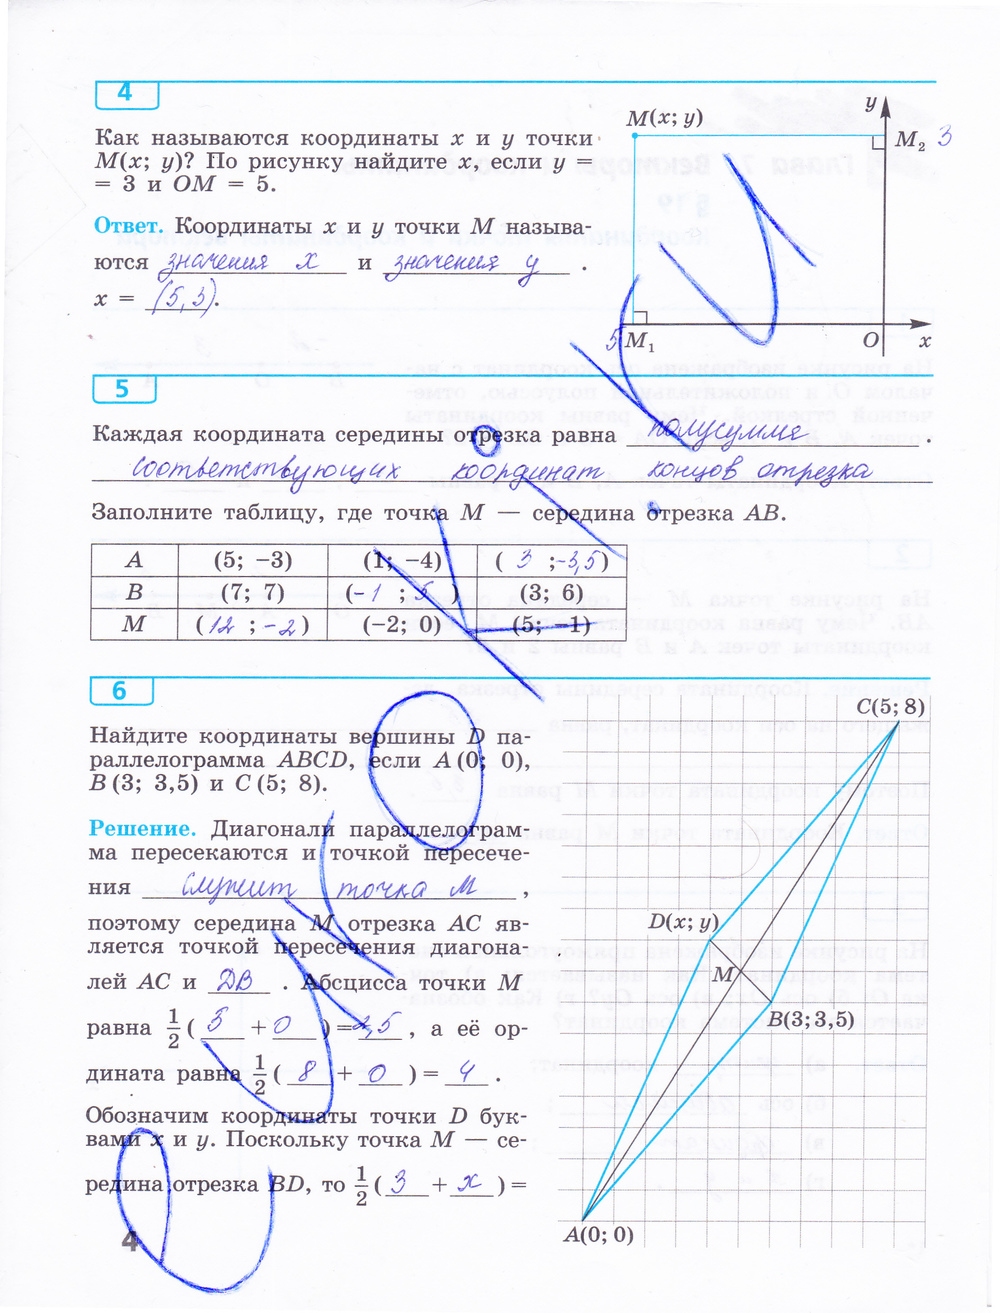 4
Как называются координаты x и y точки
M(x; y)? По рисунку найдите x, если y =
= 3 и OM = 5.
Ответ. Координаты x и y точки M называ-
ются значения x и значения y .
x = (5,3).
M(x; y)
y
M₂ 3
5 M₁
O
x
5
Каждая координата середины отрезка равна полусумме .
соответствующих координат концов отрезка
Заполните таблицу, где точка M — середина отрезка AB.
A (5; −3) (1; −4) ( 3 ;-3,5)
B (7; 7) (-1 ; 5 ) (3; 6)
M (12 ; -2 ) (−2; 0) (5; −1)
6
Найдите координаты вершины D па-
раллелограмма ABCD, если A (0; 0),
B (3; 3,5) и C (5; 8).
Решение. Диагонали параллелограм-
ма пересекаются и точкой пересече-
ния служит точка M ,
поэтому середина M отрезка AC яв-
ляется точкой пересечения диагона-
лей AC и DB . Абсцисса точки M
равна 1/2 ( 5 + 0 ) = 2,5 , а её ор-
дината равна 1/2 ( 8 + 0 ) = 4 .
Обозначим координаты точки D бук-
вами x и y. Поскольку точка M — се-
редина отрезка BD, то 1/2 ( 3 + x ) =
C(5; 8)
D(x; y)
M
B(3; 3,5)
A(0; 0)
4